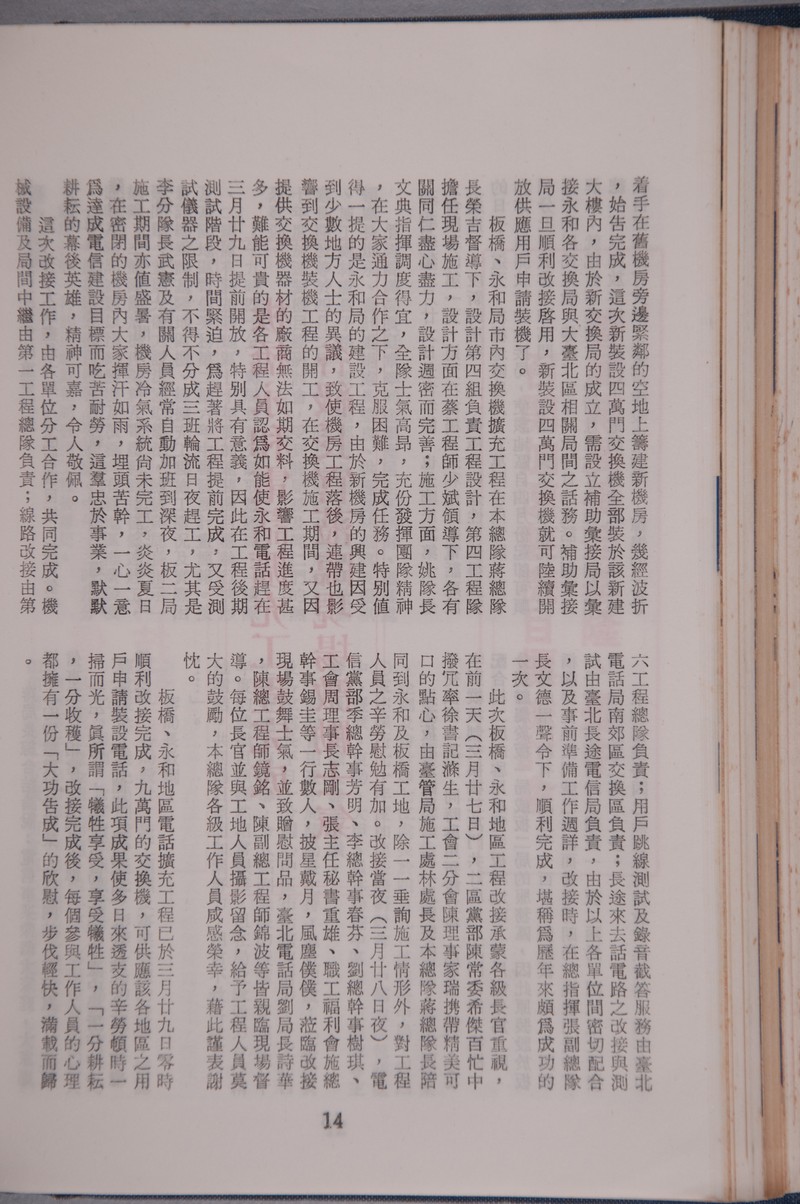 着手在舊機房旁邊緊鄰的空地上籌建新機房，幾經波折
，始告完成，這次新裝設四萬門交換機全部裝於該新建
大樓內，由於新交換局的成立，需設立補助彙接局以彙
接永和各交換局與大臺北區相關局間之話務。補助彙接
局一旦順利改接啓用，新裝設四萬門交換機就可陸續開
放供應用戶申請裝機了。
板橋、永和局市內交換機擴充工程在本總隊蔣總隊
長榮吉督導下，設計第四組負責工程設計，第四工程隊
擔任現場施工，設計方面在蔡工程師少斌領導下，各有
關同仁盡心盡力，設計週密而完善；施工方面，姚隊長
文典指揮調度得宜，全隊士氣高昂，充份發揮團隊精神
，在大家通力合作之下，克服困難，完成任務。特別值
得一提的是永和局的建設工程，由於新機房的興建因受
到少數地方人士的異議，致使機房工程落後，連帶也影
響到交換機裝機工程的開工，在交換機施工期間，又因
提供交換機器材的廠商無法如期交料，影響工程進度甚
多，難能可貴的是各工程人員認爲如能使永和電話趕在
三月廿九日提前開放，特別具有意義，因此在工程後期
測試階段，時間緊迫，爲趕著將工程提前完成，又受測
試儀器之限制，不得不分成三班輪流日夜趕工，尤其是
李分隊長武憲及有關人員經常自動加班到深夜，板二局
施工期間亦值盛暑，機房冷氣系統尙未完工，炎炎夏日
，在密閉的機房內大家揮汗如雨，埋頭苦幹，一心一意
爲達成電信建設目標而吃苦耐勞，這羣忠於事業，默默
耕耘的幕後英雄，精神可嘉，令人敬佩。
這次改接工作，由各單位分工合作，共同完成。機
械設備及局間中繼由第一工程總隊負責；線路改接由第
六工程總隊負責；用戶跳線測試及錄音截答服務由臺北
電話局南郊區交換區負責；長途來去話電路之改接與測
試由臺北長途電信局負責，由於以上各單位間密切配合
，以及事前準備工作週詳，改接時，在總指揮張副總隊
長文德一聲令下，順利完成，堪稱爲歷年來頗爲成功的
一次。
此次板橋、永和地區工程改接承蒙各級長官重視，
在前一天（三月廿七日），二區黨部陳常委希傑百忙中
撥冗率徐書記滌生，工會二分會陳理事家瑞携帶精美可
口的點心，由臺管局施工處林處長及本總隊蔣總隊長陪
同到永和及板橋工地，除一一垂詢施工情形外，對工程
人員之辛勞慰勉有加。改接當夜（三月廿八日夜），電
信黨部季總幹事芳明、李總幹事春芬、劉總幹事樹琪、
工會周理事長志剛、張主任秘書重雄、職工福利會施總
幹事錫圭等一行數人，披星戴月，風塵僕僕，蒞臨改接
現場鼓舞士氣，並致贈慰問品，臺北電話局劉局長詩華
，陳總工程師鏡銘、陳副總工程師錦波等皆親臨現場督
導。每位長官並與工地人員攝影留念，給予工程人員莫
大的鼓勵，本總隊各級工作人員咸感榮幸，藉此謹表謝
忱。
板橋、永和地區電話擴充工程已於三月廿九日零時
順利改接完成，九萬門的交換機，可供應該各地區之用
戶申請裝設電話，此項成果使多日來透支的辛勞頓時一
掃而光，眞所謂「犧牲享受，享受犧牲」，「一分耕耘
，一分收穫」，改接完成後，每個參與工作人員的心理
都擁有一份「大功告成」的欣慰，步伐輕快，滿載而歸
。
14